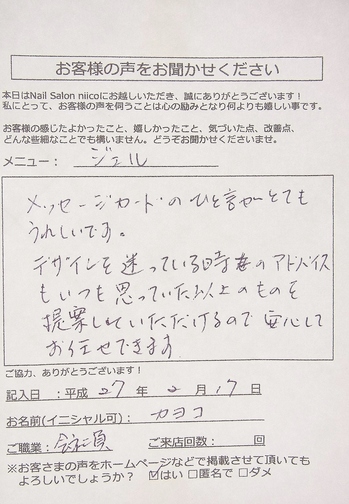 お客様の声をお聞かせください
本日はNail Salon niicoにお越しいただき、誠にありがとうございます！
私にとって、お客様の声を伺うことは心の励みとなり何よりも嬉しい事です。
お客様の感じたよかったこと、嬉しかったこと、気づいた点、改善点、
どんな些細なことでも構いません。どうぞお聞かせくださいませ。
メニュー： ジェル
メッセージカードのひと言がとても
うれしいです。
デザインを迷っている時のアドバイス
もいつも思っていた以上のものを
提案していただけるので安心して
お任せできます
ご協力、ありがとうございます！
記入日：平成 27 年 2 月 17 日
お名前(イニシャル可)： カヨコ
ご職業：会社員 ご来店回数： 回
※お客さまの声をホームページなどで掲載させて頂いても
よろしいでしょうか？ ☑はい □匿名で □ダメ